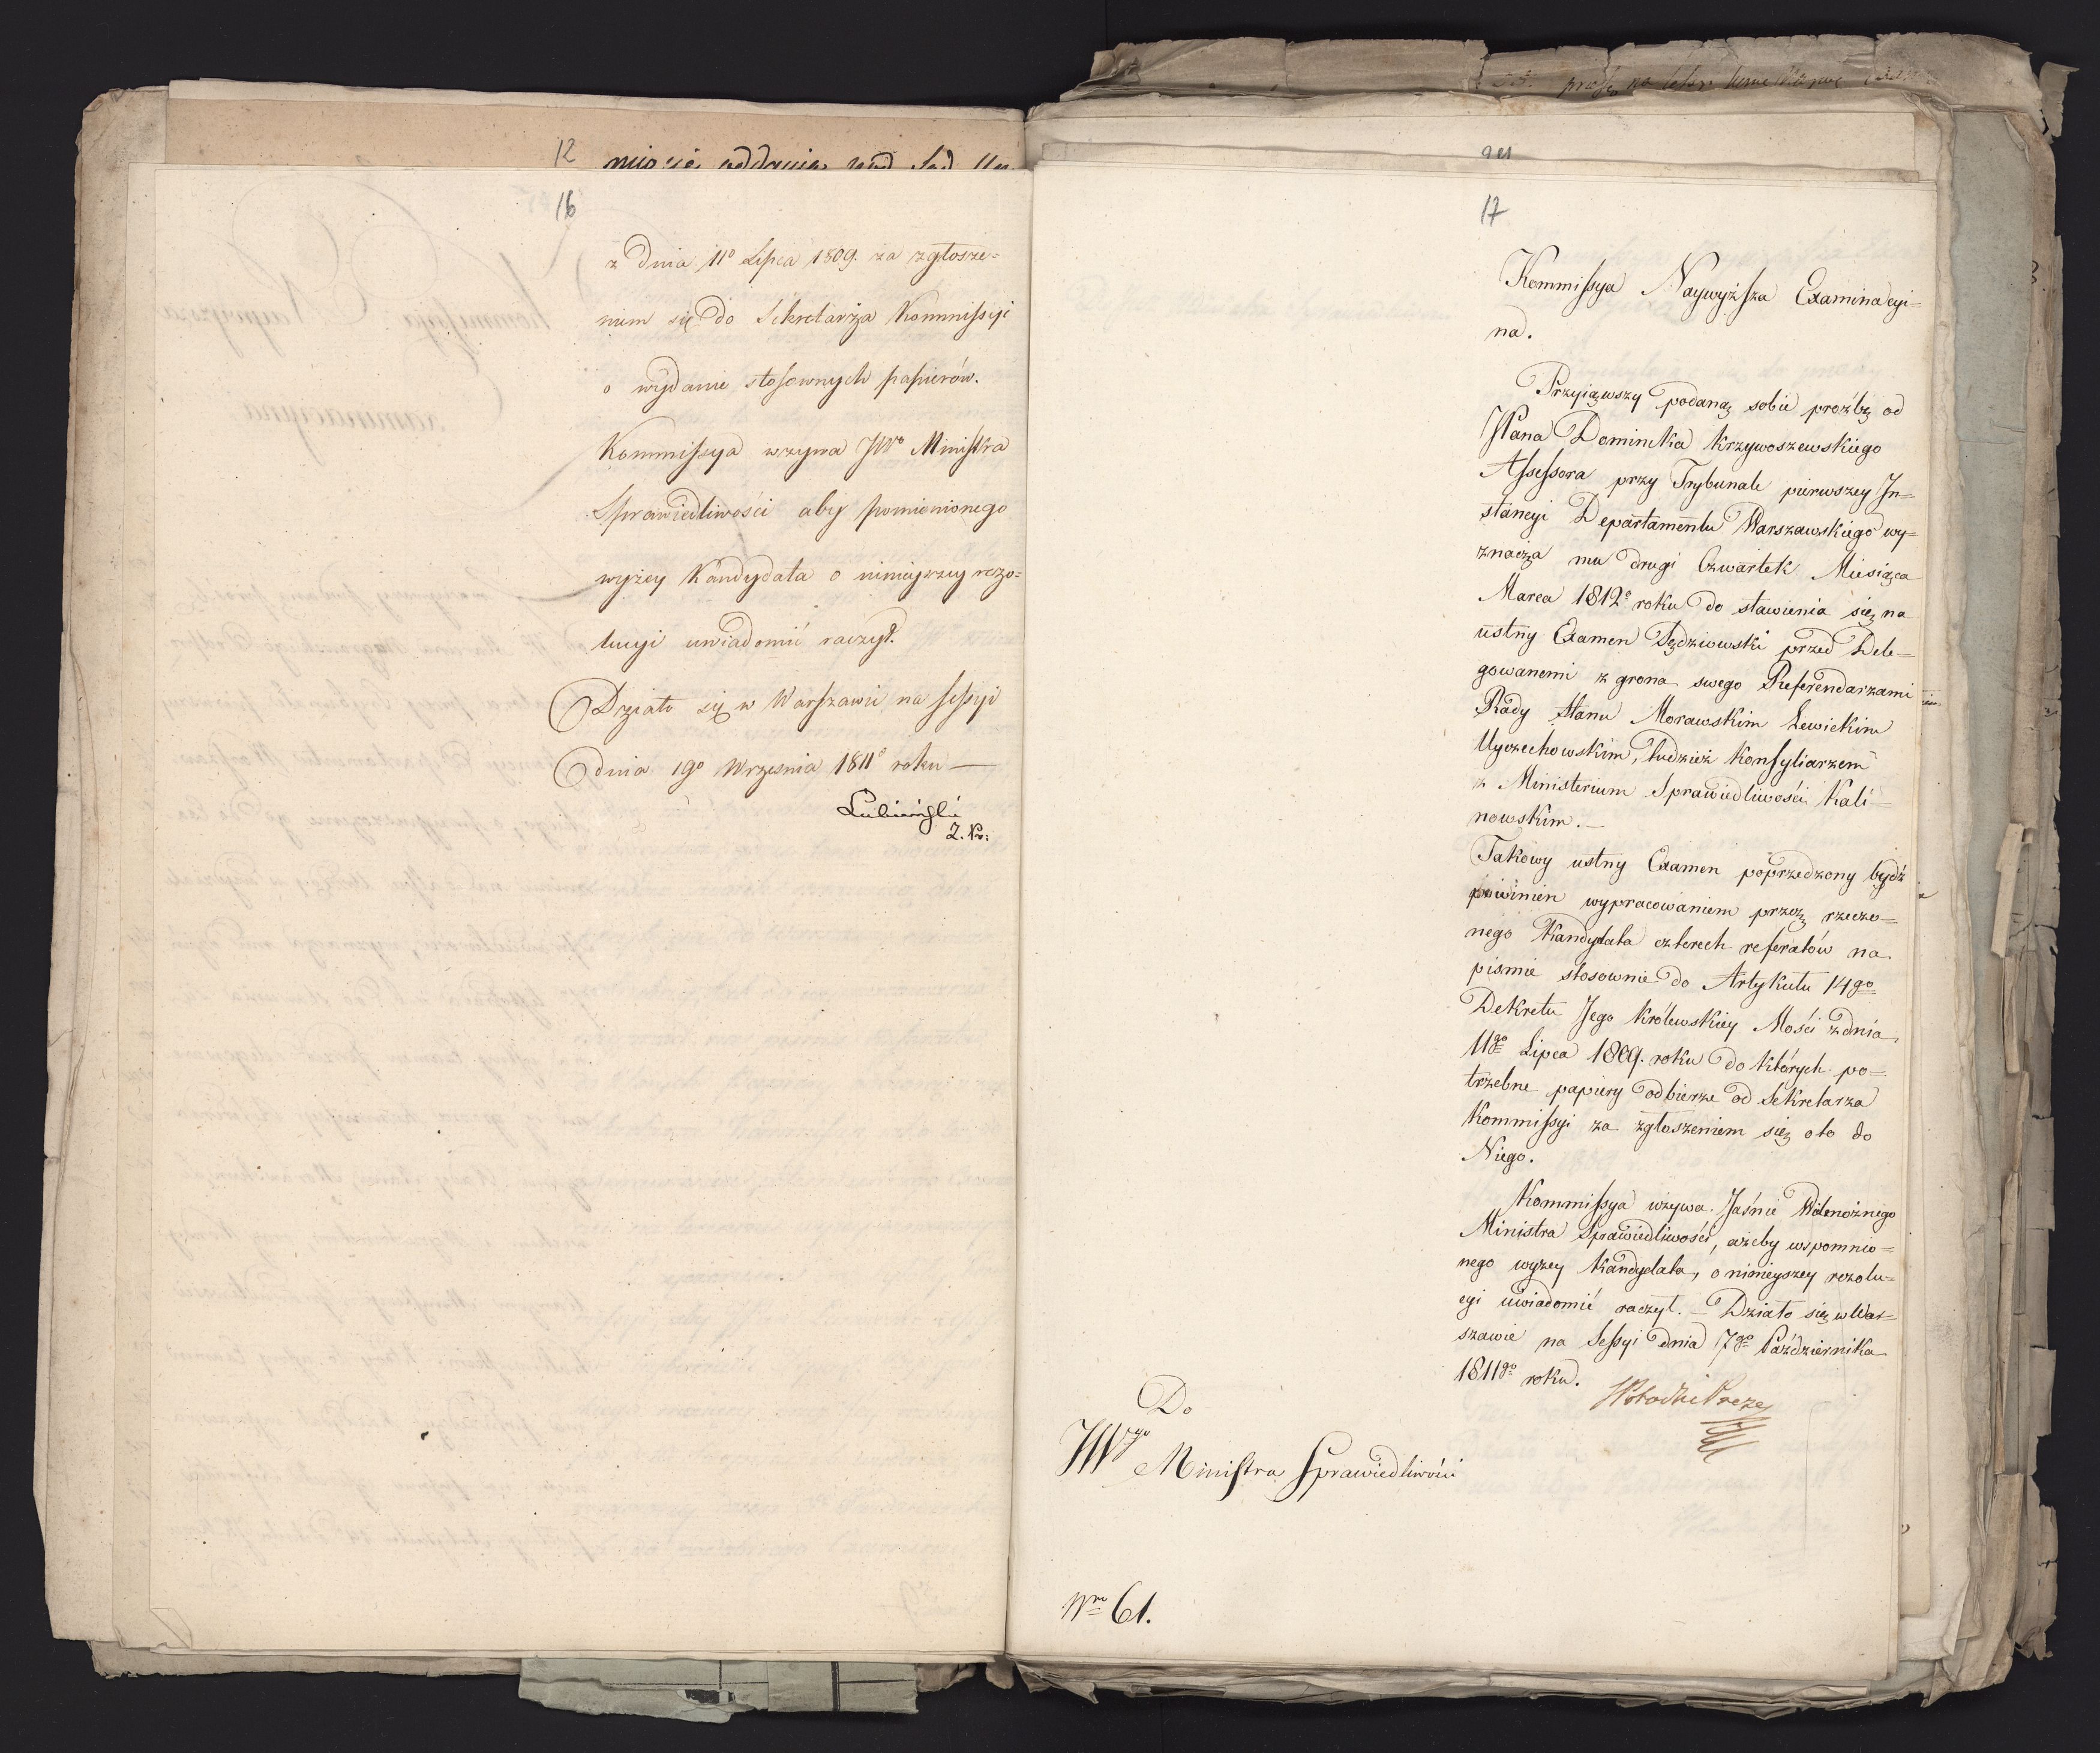 12
16
z Dnia 11º Lipca 1809. za zgłosze=
niem się do Sekretarza Kommissyi
o wydanie stosownych papierów.
Kommissya wzywa JWº Ministra
Sprawiedliwości aby pomienionego
wyżey Kandydata o ninieyszey rezo=
lucyi uwiadomić raczył.
Działo się w Warszawie na sessyi
dnia 19º Września 1811º roku —
17
Kommissya Naywyższa Examinacyi=
na.
Przyiąwszy podaną sobie proźbę od
JPana Dominika Krzywoszewskiego
Assessora przy Trybunale pierwszey In=
stancyi Departamentu Warszawskiego wy=
znacza mu drugi Czwartek Miesiąca
Marca 1812º roku do stawienia się na
ustny Examen Sędziowski przed Dele=
gowanemi z grona swego Referendarzami
Rady Stanu Morawskim Lewickim
Wyczechowskim, tudzież Konsyliarzem
z Ministerium Sprawiedliwości Kali=
nowskim. —
Takowy ustny Examen poprzedzony bydź
powinien wypracowaniem przez rzeczo=
nego Kandydata czterech referatów na
piśmie stosownie do Artykułu 14go
Dekretu Jego Królewskiey Mości z dnia
11go Lipca 1809. roku do których po=
trzebne papiery odbierze od Sekretarza
Kommissyi za zgłoszeniem się oto do
Niego.
Kommissya wzywa Jaśnie Wielmożnego
Ministra Sprawiedliwości, ażeby wspomnio=
nego wyżey Kandydata, o ninieyszey rezolu=
cyi uwiadomić raczył. — Działo się w War=
szawie na Sessyi dnia 17go Października
1811go roku.
Do
JWgo Ministra Sprawiedliwości
Nro 61.